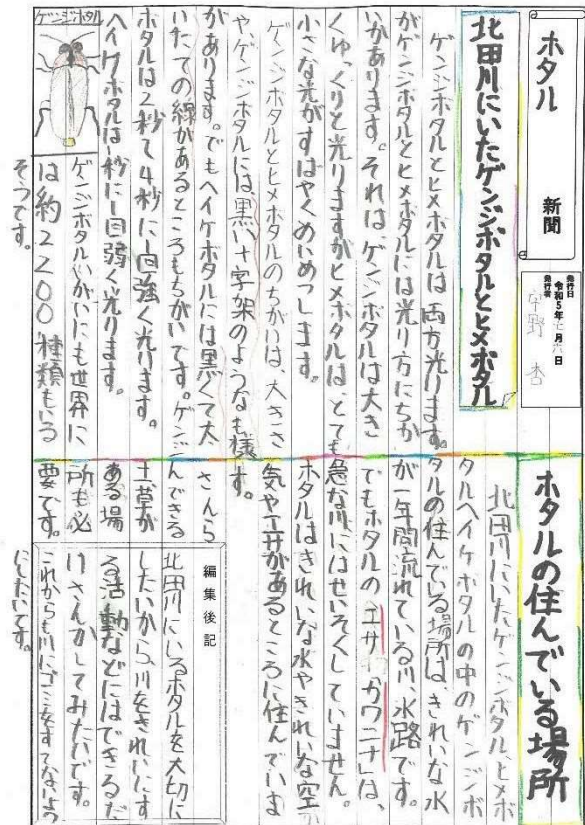 ホタル
新聞
発行日
令和5年七月六日
発行者
宇野 杏
北田川にいたゲンジボタルとヒメボタル
ゲンジボタルとヒメボタルは両方光ります。
がゲンジボタルとヒメボタルには光り方にちが
いがあります。それはゲンジボタルは大き
くゆっくりと光りますがヒメボタルは、とても
小さな光がすばやくめいめつします。
ゲンジボタルとヒメボタルのちがいは、大きさ
やゲンジボタルには、黒い十字架のようなも様
があります。でもヘイケボタルには黒くて太
いたての線があるところもちがいです。ゲンジ
ボタルは2秒て4秒に1回強く光ります。
ヘイケボタルは1秒に1回弱く光ります。
ゲンジボタル
ゲンジボタルいがいにも世界に
は約2200種類もいる
そうです。
ホタルの住んでいる場所
北田川にいたゲンジボタル、ヒメボ
タルヘイケボタルの中のゲンジボ
タルの住んでいる場所は、きれいな水
が一年間流れている川、水路です。
でもホタルのエサ"カワニナ"は、
急な川にはせいそくしていません。
ホタルはきれいな水やきれいな空
気やエサがあるところに住んでいま
す。
さんら
んできる
土草が
ある場
所も必
要です。
編集後記
北田川にいるホタルを大切に
したいから、川をきれいにす
る活動などにはできるだ
けさんかしてみたいです。
これからも川にゴミをすてないよう
にしたいです。